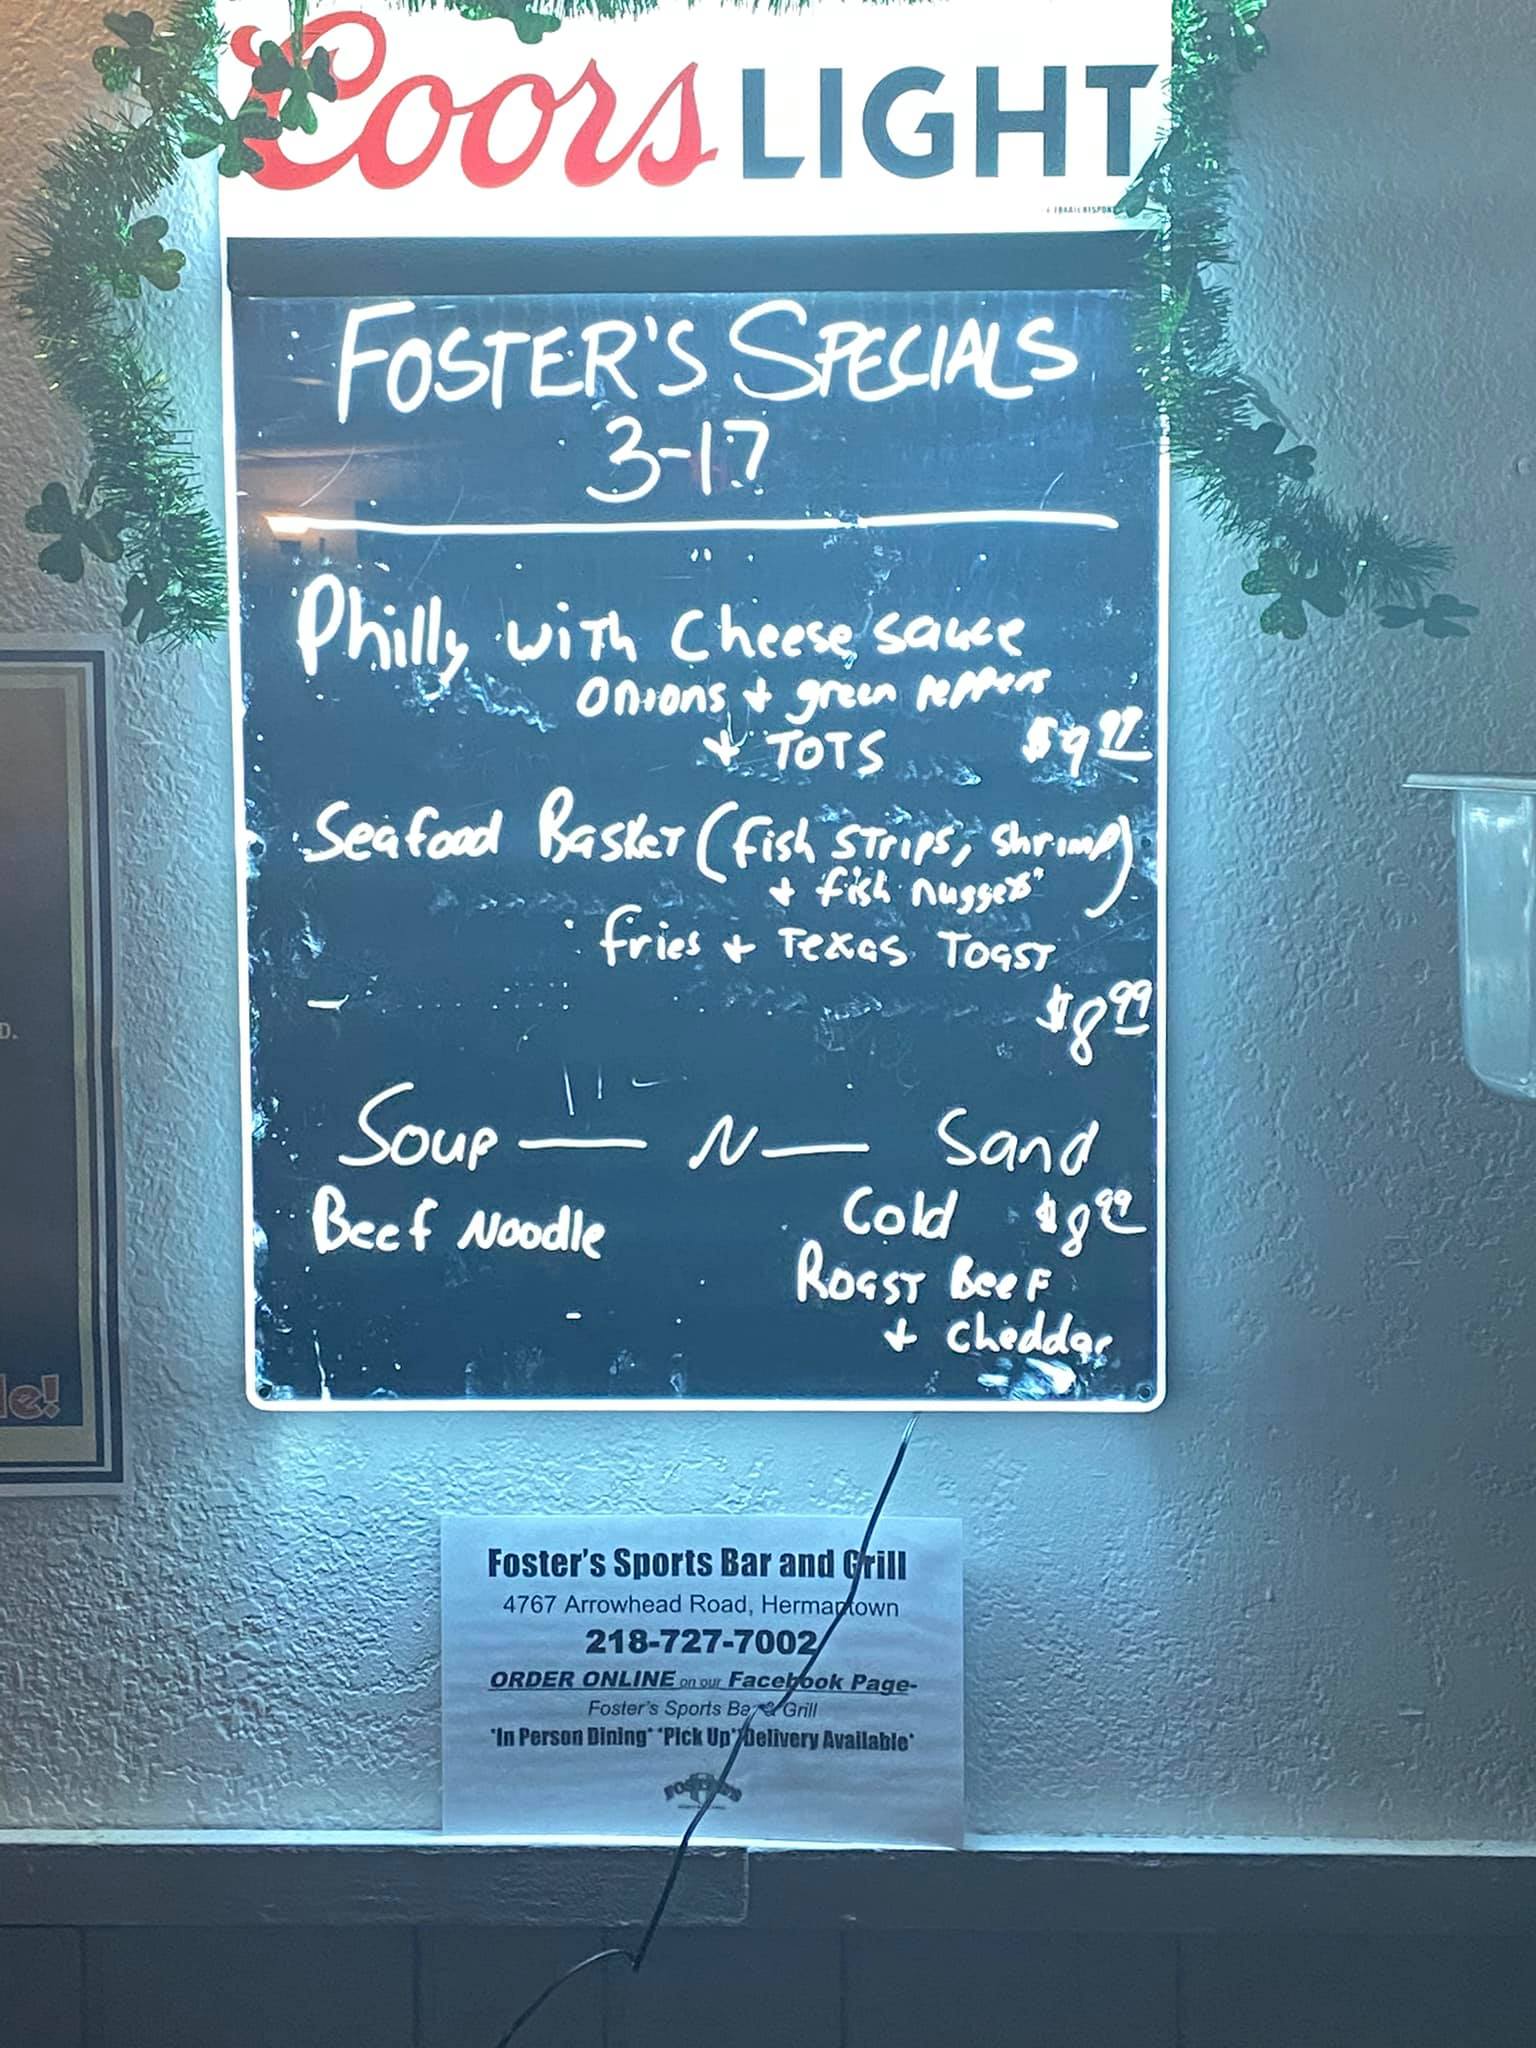 Coors LIGHT
FOSTER'S SPECIALS
3-17
Philly with Cheese sauce
onions + green peppers
+ TOTS $9.99
Seafood Basket (fish strips, shrimp
+ fish nuggets)
fries + Texas Toast
$8.99
Soup — N — Sand
Beef Noodle Cold $8.99
Roast Beef
+ cheddar
D.
le!
Foster's Sports Bar and Grill
4767 Arrowhead Road, Hermantown
218-727-7002
ORDER ONLINE on our Facebook Page-
Foster's Sports Bar & Grill
*In Person Dining* *Pick Up* *Delivery Available*
FOSTER'S